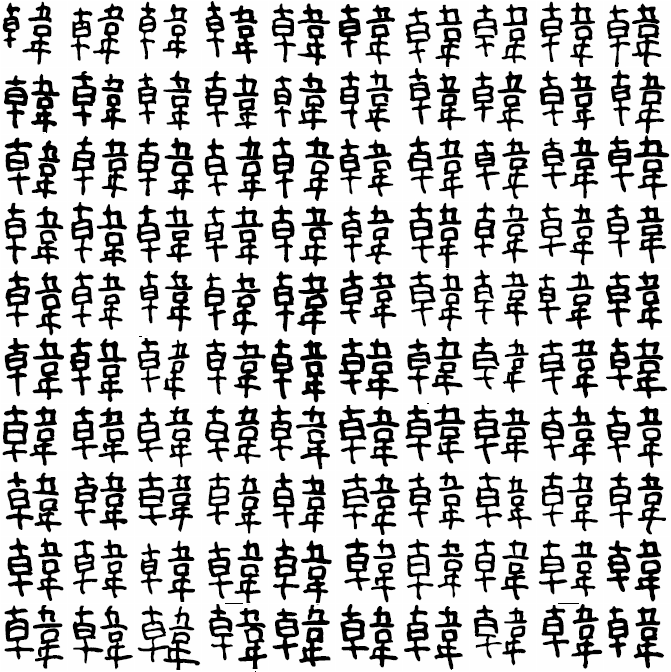 韓韓韓韓韓韓韓韓韓韓
韓韓韓韓韓韓韓韓韓韓
韓韓韓韓韓韓韓韓韓韓
韓韓韓韓韓韓韓韓韓韓
韓韓韓韓韓韓韓韓韓韓
韓韓韓韓韓韓韓韓韓韓
韓韓韓韓韓韓韓韓韓韓
韓韓韓韓韓韓韓韓韓韓
韓韓韓韓韓韓韓韓韓韓
韓韓韓韓韓韓韓韓韓韓